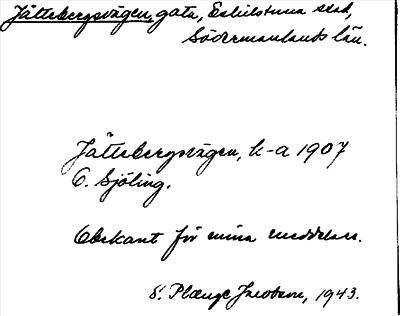 Jättebergsvägen, gata, Eskilstuna stad,
Södermanlands län.
Jättebergsvägen, k-a 1907
C. Sjöling.
Obekant för mina meddelare.
S. Plænge Jacobson, 1943.